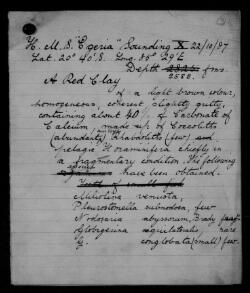 H. M. S. "Egeria" Sounding X 22/10/87
Lat. 20° 40' S. Long. 85° 29' E
Depth 2825 fms
2588.
A Red Clay
of a light brown colour,
homogeneous, coherent, slightly gritty,
containing about 40% of Carbonate of
Calcium, made up of Coccoliths
(abundant) Rhabdoliths (few) and
pelagic Foraminifera chiefly in
a fragmentary condition. The following
species
have been obtained.
Miliolina venusta,
Pleurostomella subnodosa, few
Nodosaria abyssorum, Brady
Globigerina aequilateralis, rare
G. conglobata (small) few.